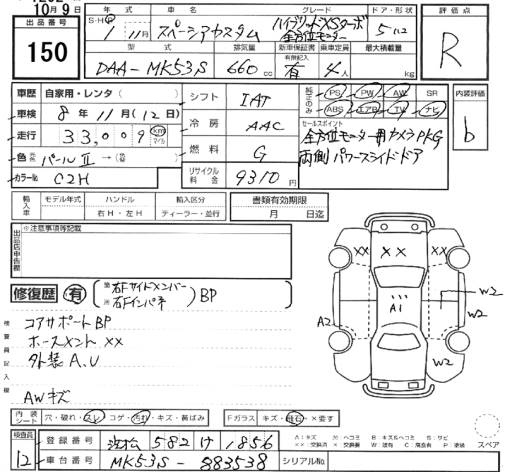 10月9日
出品番号
150
年 車名 グレード ドア・形状 評価点
S・H・R 1 11月 スペーシアカスタム ハイブリッドXSターボ 全方位モニター 5 R
型式 排気量 新車保証書 有無記入 乗車定員 最大積載量
DAA-MK53S 660cc 有 4人 kg
車歴 自家用・レンタ シフト IAT
純正のみ PS PW AW SR ABS エアB TV ナビ
内装評価 b
車検 8年11月(12日) 冷房 AAC
セールスポイント
全方位モニター用カメラPKG
両側パワースライドドア
走行 33,009 km マイル
色 パールⅡ→( ) 燃料 G
カラー№ C2H リサイクル料金 9310円
輸入車 モデル年式 年 ハンドル 右H・左H 輸入区分 ディーラー・並行 書類有効期限 月 日迄
出品店申告欄 ※注意事項等記載
修復歴 有 箇所 右Fサイドメンバー 右Fインパネ BP
検査員記入欄
コアサポートBP
ホースメント××
外装A.U
AWキズ
×× ×× A1 A2 W2 W2 W2
内装 シート 穴・破れ・スレ・コゲ・汚れ・キズ・黄ばみ Fガラス キズ・飛石・×要す
A:キズ H:ヘコミ B:キズ&ヘコミ S:サビ
スペア
検査員 12
登録番号 582 け 1856
車台番号 MK53S-883538 シリアル№